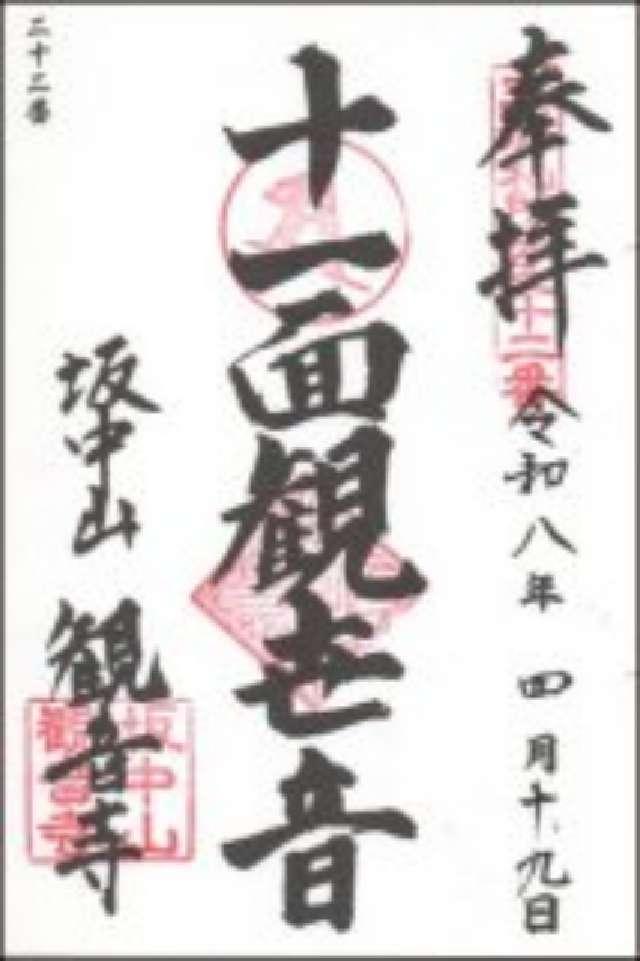 奉拝
令和八年 四月十九日
十一面観世音
坂中山 観音寺
二十二番
十二番
坂中山
観音寺